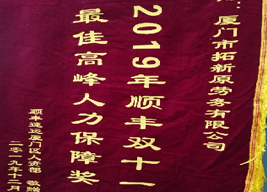 厦门市拓新原劳务有限公司
2019年顺丰双十一
最佳高峰人力保障奖
顺丰速运厦门区人资部 敬赠
二零一九年十二月